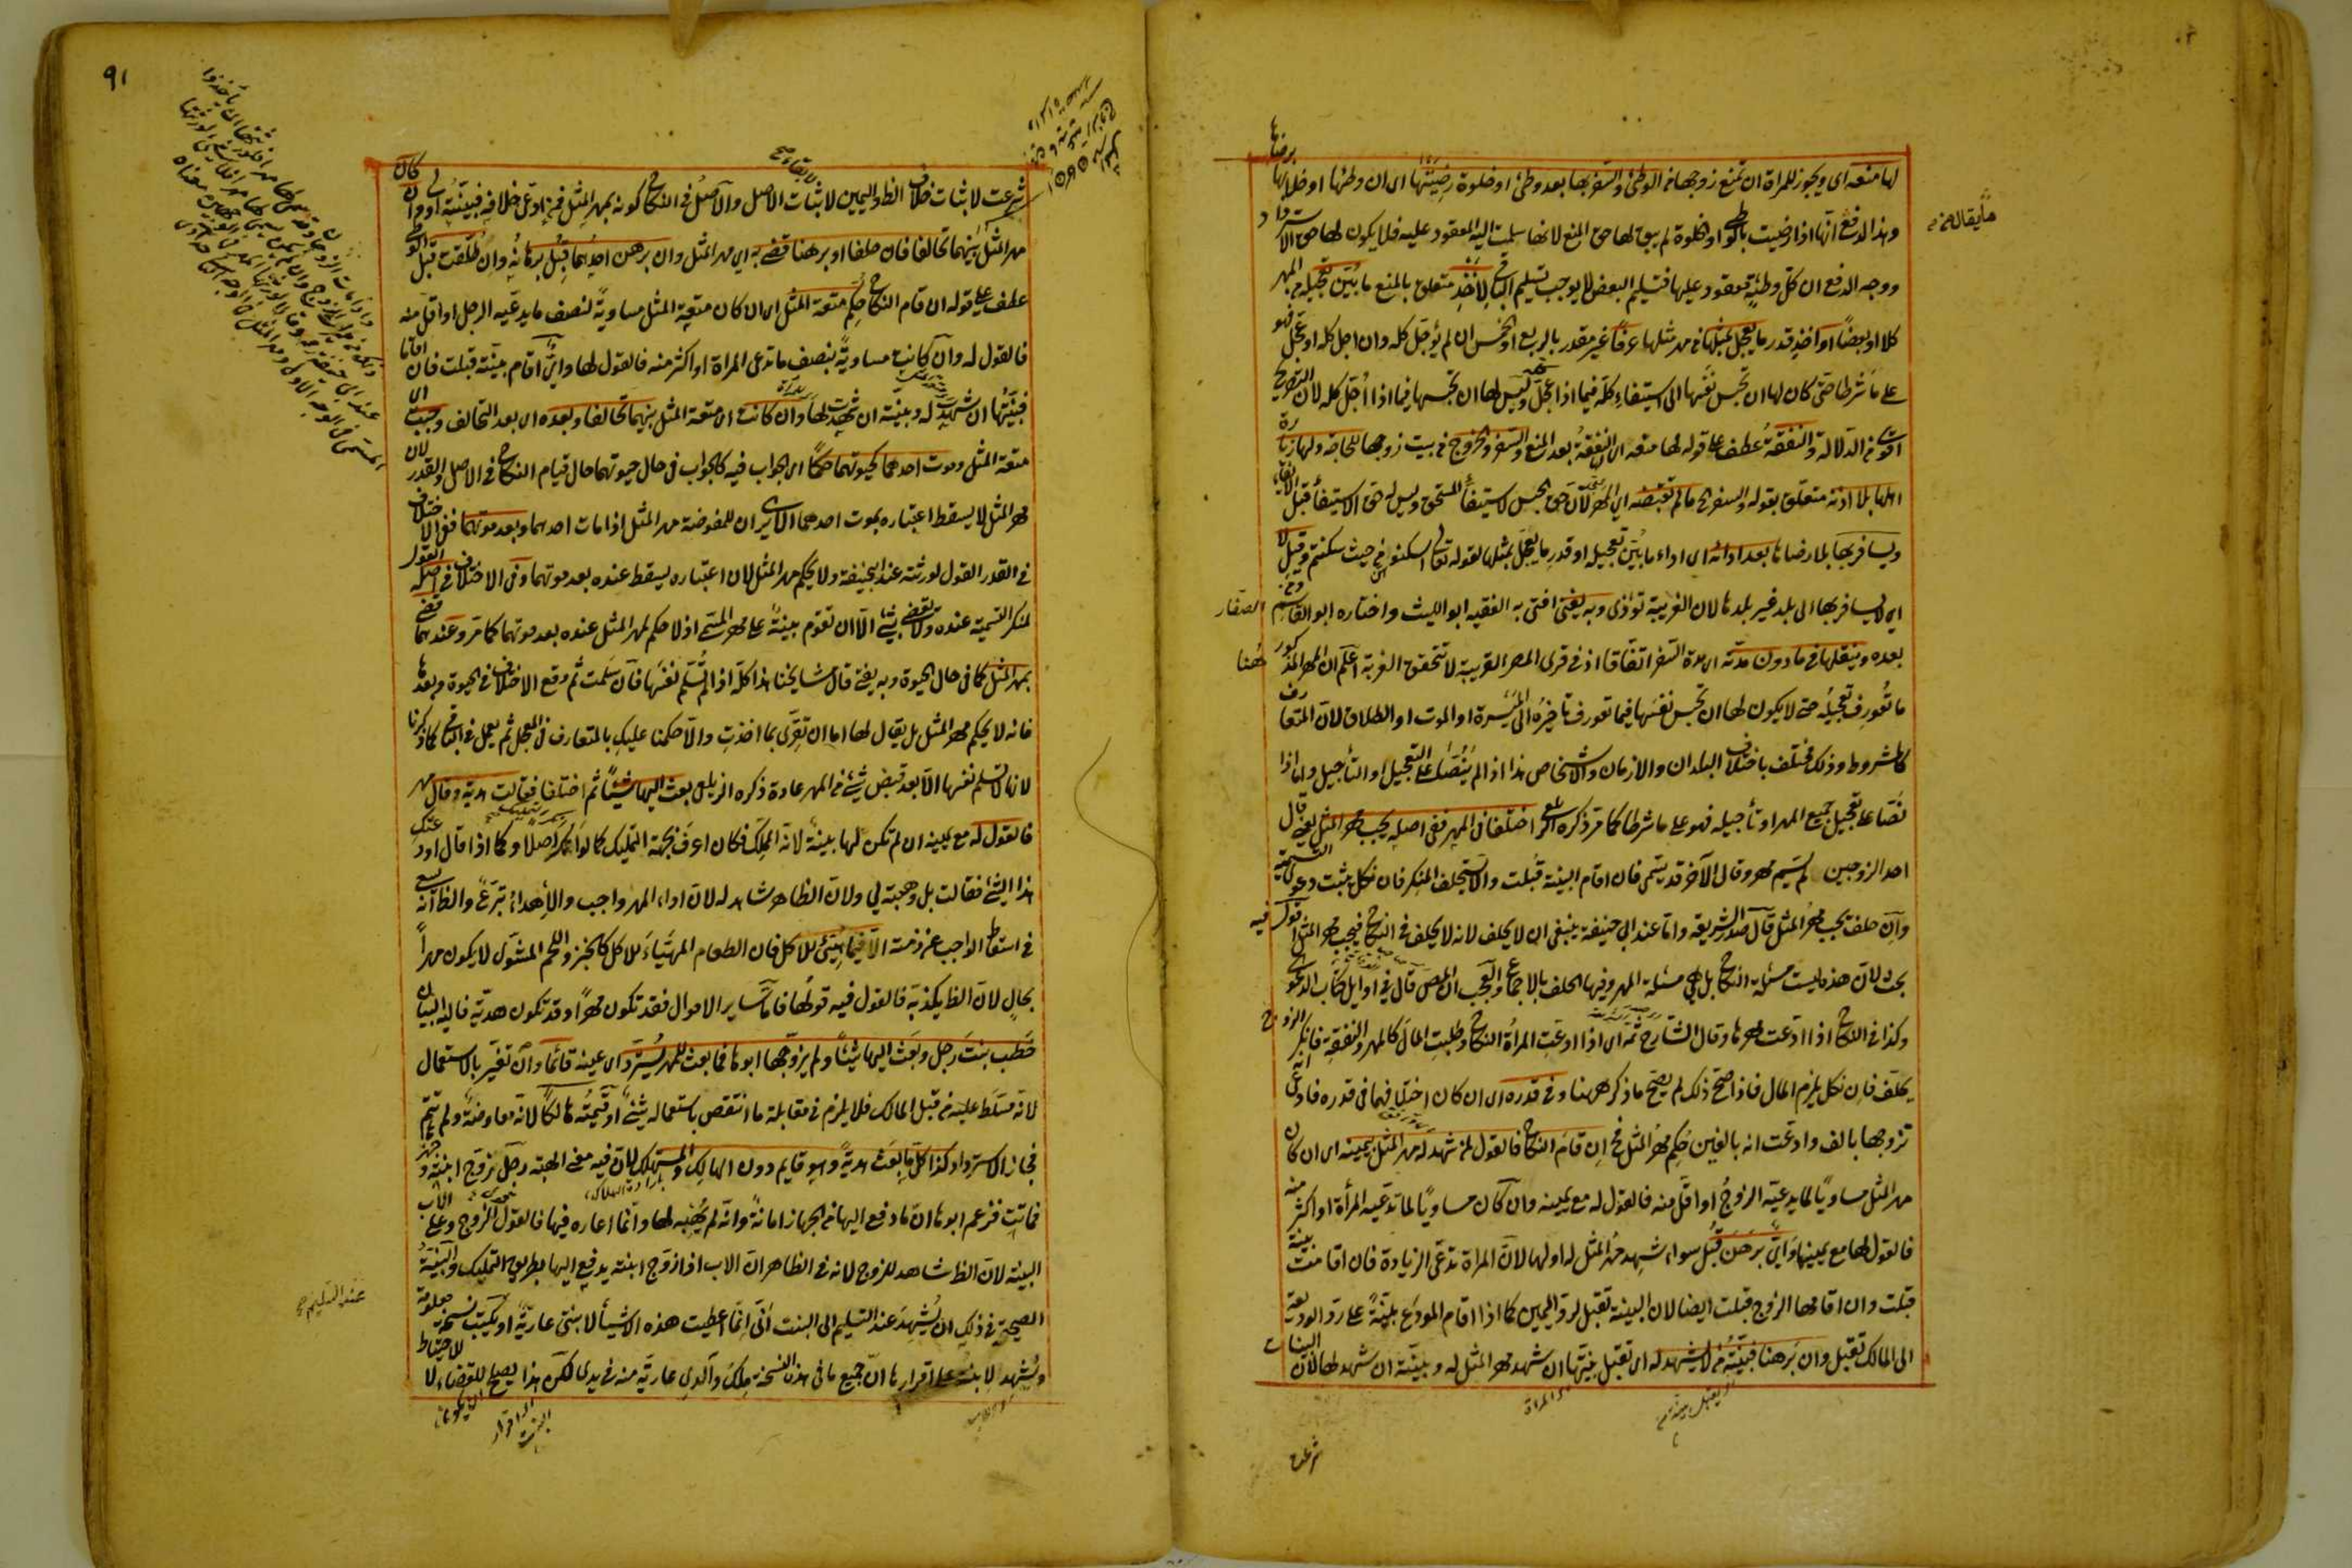 لها منعه اى ويجوز للمراة ان تمنع زوجها من الوطئ والسفر بها بعد وطئ او خلوة رضيتها اى ان وطئها او خلا بها برضاها
وهذا لدفع انها اذا رضيت بالوطئ او الخلوة لم يبق لها حق المنع لانها سلمت اليه المعقود عليه فلا يكون لها حق الاسترداد
ما يقال
ووجه الدفع ان كل وطئة معقود عليها فتسليم البعض لا يوجب تسليم الباقى لاخذ متعلق بالمنع ما بين تعجيله من المهر
كلا او بعضا او اخذ قدر ما يعجل لمثلها من مهر مثلها عرفا غير مقدر بالربع او الخمس ان لم يؤجل كله وان اجل كله او عجل فهو
على ما شرطا حتى كان لها ان تحبس نفسها الى استيفاء كله فيما اذا عجل كله وليس لها ان تحبسها فيما اذا اجل كله لان التصريح
اقوى من الدلالة والنفقة عطف على قوله لها منعه اى لها النفقة بعد المنع والسفر والخروج من بيت زوجها للحاجة ولها زيارة
اهلها بلا اذنه متعلق بقوله والسفر الخ ما لم تقبضه اى المهر لان حق الحبس لاستيفاء المستحق وليس له حق الاستيفاء قبل الايفاء
ويسافر بها بلا رضاها بعد ادائه اى اداء ما بين تعجيله او قدر ما يعجل لمثلها لقوله تعالى اسكنوهن من حيث سكنتم وقيل لا
اى لا يسافر بها الى بلد غير بلدها لان الغريبة تؤذى وبه يفتى افتى به الفقيه ابو الليث واختاره ابو القاسم الصفار ومن
بعده وينقلها فى ما دون مدته اى مدة السفر اتفاقا اذ فى قرى المصر القريبة لا تتحقق الغربة اعلم ان المهر المذكور ههنا
ما تعورف تعجيله حتى لا يكون لها ان تحبس نفسها فيما تعورف تاخيره الى الميسرة او الموت او الطلاق لان المتعارف
كالمشروط وذلك مختلف باختلاف البلدان والازمان والاشخاص هذا اذا لم ينصا على التعجيل او التأجيل واما اذا
نصا على تعجيل جميع المهر او تأجيله فهو على ما شرطا كما مر ذكره الزيلعى اختلفا فى المهر ففى اصله يجب مهر المثل يعنى قال
احد الزوجين لم يسم مهر وقال الآخر قد يسمى فان اقام البينة قبلت والا يستحلف المنكر فان نكل يثبت دعوى التسمية
وان حلف يجب مهر المثل قال صدر الشريعة واما عند ابى حنيفة ينبغى ان لا يحلف لانه لا يحلف فى النكاح فيجب مهر المثل اقول فيه
بحث لان هذه ليست مسئلة النكاح بل هى مسئلة المهر وفيها الحلف بالاجماع والعجب ان المص قال فى اوايل كتاب الدعوى
وكذا فى النكاح اذا ادعت مهرها وقال الشارح ثمة اى اذا ادعت المراة النكاح وطلبت المال كالمهر والنفقة فانكر الزوج
يحلف فان نكل يلزم المال فاذا صح ذلك لم يصح ما ذكر ههنا وفى قدره اى ان كان اختلافهما فى قدره فادعى انه
تزوجها بالف وادعت انه بالفين حكم مهر المثل فح ان قام النكاح فالقول لمن شهد له مهر المثل بيمينه اى ان كان
مهر المثل مساويا لما يدعيه الزوج او اقل منه فالقول له مع يمينه وان كان مساويا لما تدعيه المرأة او اكثر منه
فالقول لها مع يمينها واى برهن قبل سواء شهد مهر المثل له او لها لان المراة تدعى الزيادة فان اقامت بينة
قبلت وان اقامها الزوج قبلت ايضا لان البينة تقبل لرد اليمين كما اذا اقام المودع بينة على رد الوديعة
الى المالك تقبل وان برهنا فبينة من لا يشهد له اى تقبل بينتها ان شهد مهر المثل له وبينته ان شهد لها لان البينات
شرعت
٩١
شرعت لاثبات خلاف الظ واليمين لاثبات الاصل والاصل فى النكاح كونه بمهر المثل فمن ادعى خلافه فبينته اولى وان كان
مهر المثل بينهما تحالفا فان حلفا او برهنا قضى به اى مهر المثل وان برهن احدهما قبل برهانه وان طلقت قبل الوطئ
عطف على قوله ان قام النكاح حكم متعة المثل اى ان كان متعة المثل مساوية لنصف ما يدعيه الرجل او اقل منه
فالقول له وان كانت مساوية بنصف ما تدعى المراة او اكثر منه فالقول لها واى اقام بينة قبلت فان اقاما
فبينتها ان شهدت له وبينته ان شهدت لها وان كانت اى متعة المثل بينهما تحالفا وبعده اى بعد التحالف وجبت اى
متعة المثل وموت احدهما كحيوتهما حكما اى الجواب فيه كالجواب فى حال حيوتهما حال قيام النكاح فى الاصل والقدر لان
مهر المثل لا يسقط اعتباره بموت احدهما الا يرى ان للمفوضة مهر المثل اذا مات احدهما وبعد موتهما ففى الاختلاف
فى القدر القول لورثته عند ابى حنيفة ولا يحكم مهر المثل لان اعتباره يسقط عنده بعد موتهما وفى الاختلاف فى اصله القول
لمنكر التسمية عنده ولا يقضى بشئ الا ان تقوم بينة على مهر المسمى اذ لا حكم لمهر المثل عنده بعد موتهما كما مر وعندهما قضى
بمهر المثل كما فى حال الحيوة وبه يفتى قال مشايخنا هذا كله اذا لم تسلم نفسها فان سلمت ثم وقع الاختلاف فى الحيوة وبعدها
فانه لا يحكم مهر المثل بل يقال لها اما ان تقرى بما اخذت والا حكمنا عليك بالمتعارف فى المعجل ثم يعمل فى الباقى كما ذكرنا
لانها لا تسلم نفسها الا بعد قبض شئ من المهر عادة ذكره الزيلعى بعث اليها شيئا ثم اختلفا فقالت هدية وقال مهر
فالقول له مع يمينه ان لم تكن لها بينة لانه المملك فكان اعرف بجهة التمليك كما لو انكره اصلا وكما اذا قال اودعتك
هذا الشئ فقالت بل وهبته لى ولان الظاهر شاهد له لان اداء المهر واجب والاهداء تبرع والظ انه يسعى
فى اسقاط الواجب عن ذمته الا فيما هيئ للاكل فان الطعام المهياء للاكل كالخبز واللحم المشوى لا يكون مهرا
بحال لان الظ يكذبه فالقول فيه قولها فاما ساير الاموال فقد تكون مهرا وقد تكون هدية فاليه البيان
خطب بنت رجل وبعث اليها شيئا ولم يزوجها ابوها فما بعث للمهر يسترد اى عينه قائما وان تغير بالاستعمال
لانه مسلط عليه من قبل المالك فلا يلزم فى مقابلة ما انتقص باستعماله شئ او قيمته هالكا لانه معاوضة ولم تتم
فجاز الاسترداد وكذا كل ما بعث هدية وهو قايم دون الهالك والمستهلك لان فيه معنى الهبة رجل زوج ابنته وجهزها
فماتت فزعم ابوها ان ما دفع اليها من الجهاز امانة وانه لم يهبه لها وانما اعاره فيها فالقول للزوج وعلى الاب
البينة لان الظ شاهد للزوج لانه فى الظاهر ان الاب اذا زوج ابنته يدفع اليها بطريق التمليك والبينة
الصحيحة فى ذلك ان يشهد عند التسليم الى البنت انى انما اعطيت هذه الاشياء لابنتى عارية او يكتب نسخة معلومة
عند التسليم
ويشهد لابنة على اقرارها ان جميع ما فى هذه النسخة ملك والدى عارية منه فى يدى لكن هذا يصلح للقضاء لا للاحتياط